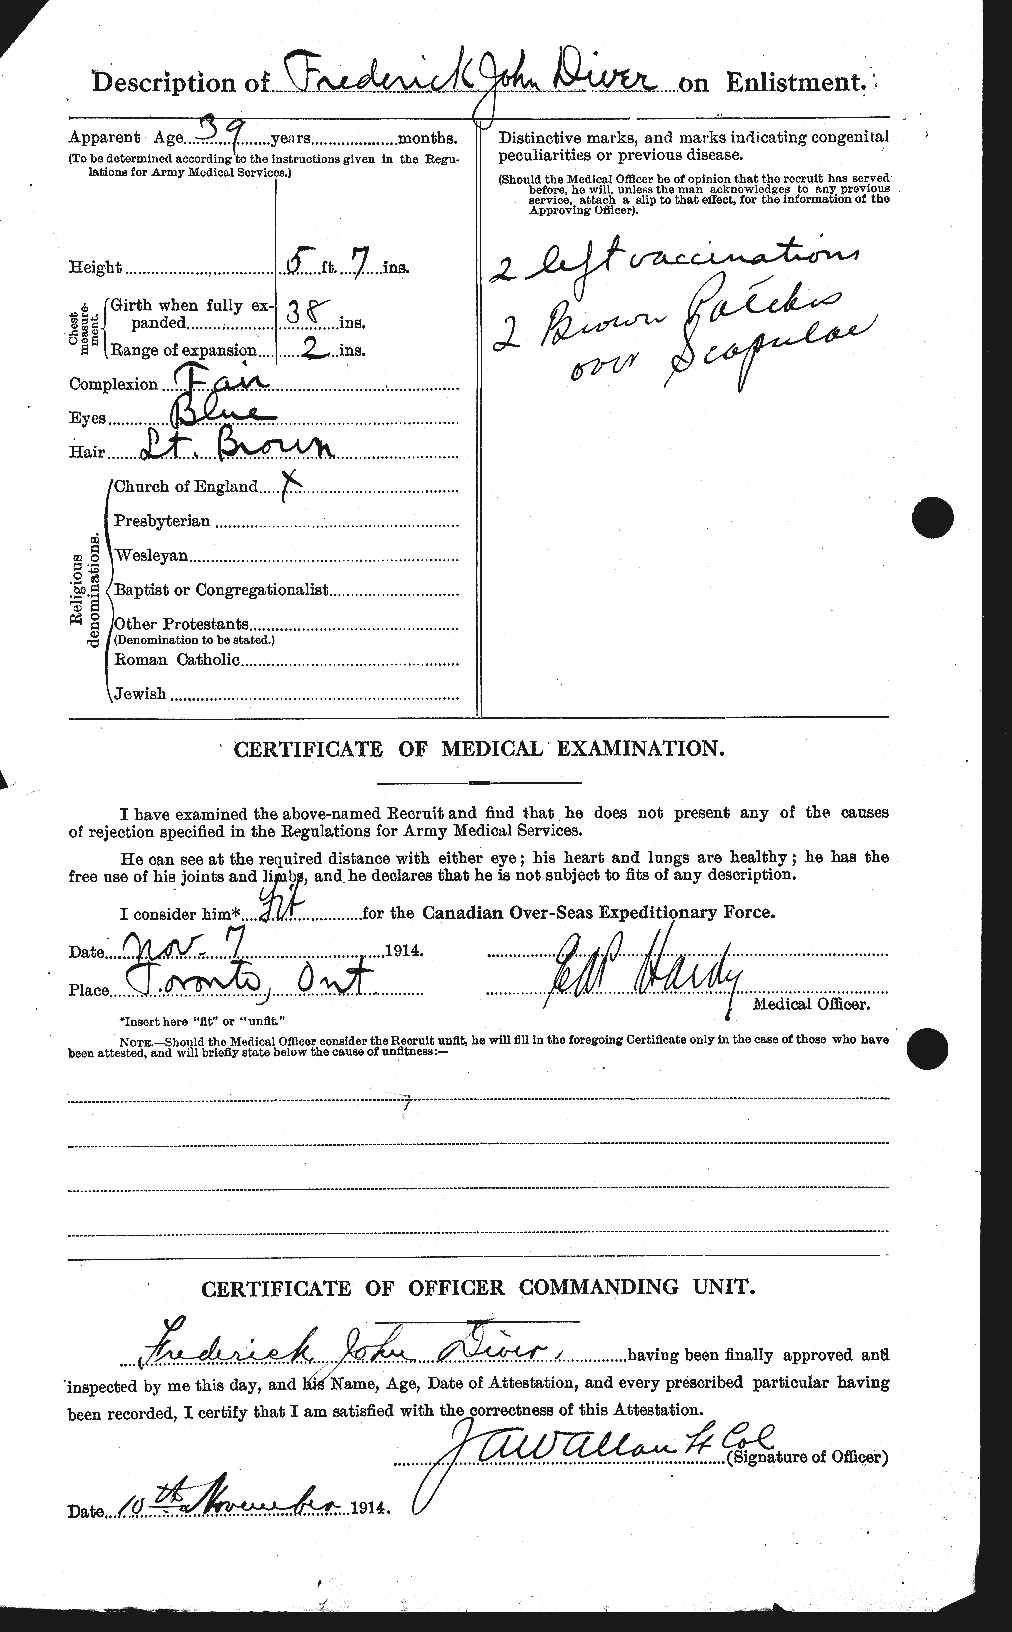 Description of Frederick John Diver on Enlistment.
Apparent Age 39 years months.
(To be determined according to the instructions given in the Regu-
lations for Army Medical Services.)
Height 5 ft. 7 ins.
Chest measurement.
Girth when fully ex-
panded 38 ins.
Range of expansion 2 ins.
Complexion Fair
Eyes Blue
Hair Lt. Brown
Religious denominations.
Church of England X
Presbyterian
Wesleyan
Baptist or Congregationalist
Other Protestants
(Denomination to be stated.)
Roman Catholic
Jewish
Distinctive marks, and marks indicating congenital
peculiarities or previous disease.
(Should the Medical Officer be of opinion that the recruit has served
before, he will, unless the man acknowledges to any previous
service, attach a slip to that effect, for the information of the
Approving Officer).
2 left vaccinations
2 Brown Patches
over Scapulae
CERTIFICATE OF MEDICAL EXAMINATION.
I have examined the above-named Recruit and find that he does not present any of the causes
of rejection specified in the Regulations for Army Medical Services.
He can see at the required distance with either eye; his heart and lungs are healthy; he has the
free use of his joints and limbs, and he declares that he is not subject to fits of any description.
I consider him* fit for the Canadian Over-Seas Expeditionary Force.
Date Nov. 7 1914.
Place Toronto, Ont
Hardy
Medical Officer.
*Insert here "fit" or "unfit."
NOTE.—Should the Medical Officer consider the Recruit unfit, he will fill in the foregoing Certificate only in the case of those who have
been attested, and will briefly state below the cause of unfitness:—
CERTIFICATE OF OFFICER COMMANDING UNIT.
Frederick John Diver, having been finally approved and
inspected by me this day, and his Name, Age, Date of Attestation, and every prescribed particular having
been recorded, I certify that I am satisfied with the correctness of this Attestation.
J A W Allan Lt Col
(Signature of Officer)
Date 10th November 1914.